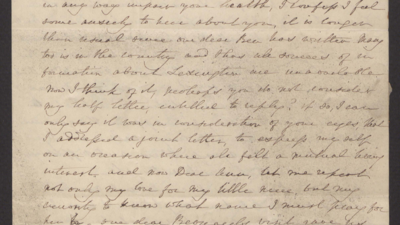 in any way impair your health, I confess I feel
some anxiety to hear about you, it is longer
than usual since our dear Bee has written Mary
too is in the country and thus all sources of in
formation about Lexington are
Now I think of it, perhaps you do not consider
my half letter entitled to reply? if so, I can
only say it was in consideration of your eyes that
I adopted a joint letter, to express my self
on an occasion where all felt a mutual living
interest, and now Dear let me repeat
not only my love for my little niece, but my
to know what name I must pray for
her by, our dear visit